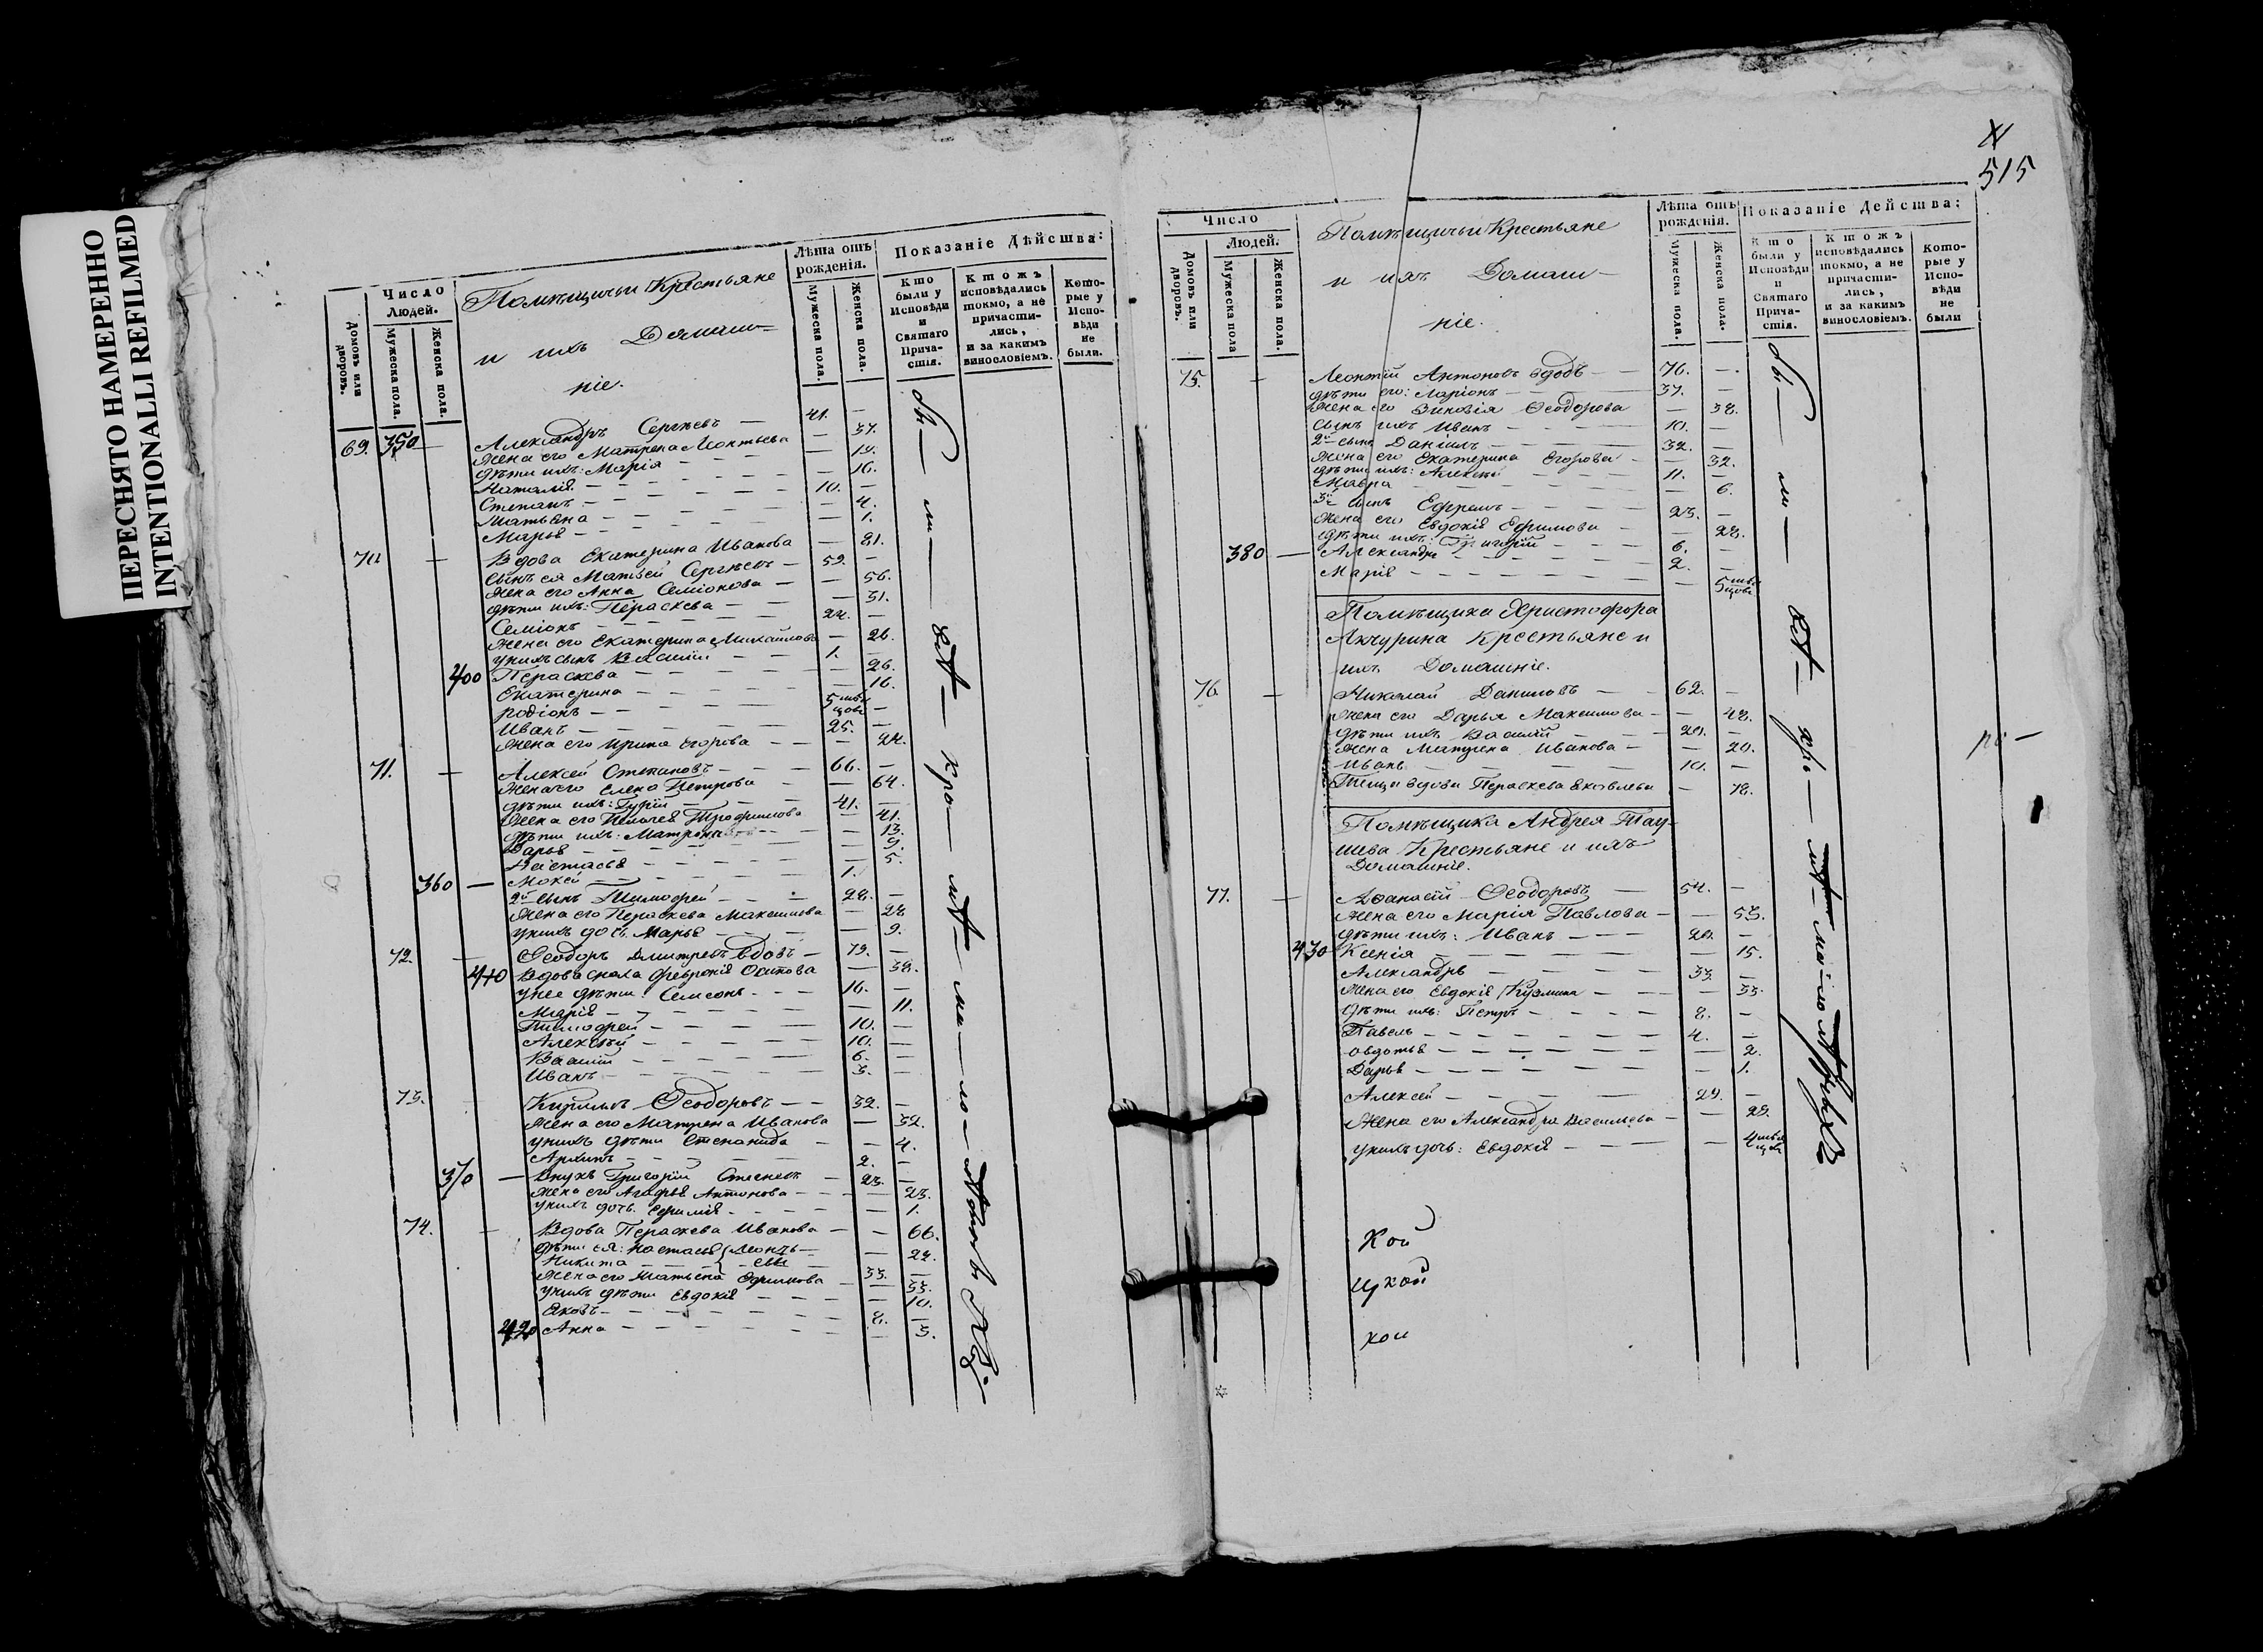 ПЕРЕСНЯТО НАМЕРЕННО
INTENTIONALLI REFILMED
Число
Людей.
Домовъ или дворовъ.
Мужеска пола.
Женска пола.
Помѣщичьи Крестьяне
и ихъ Домаш-
ніе.
Лѣта отъ рожденія.
Мужеска пола.
Женска пола.
Показаніе Дѣйства:
Кто были у Исповѣди и Святаго Прича-стія.
Ктожъ исповѣдались токмо, а не причасти-лись, и за какимъ винословіемъ.
Кото-рые у Испо-вѣди не были.
69. 350 — Александръ Сергѣевъ — 41. —
Жена его Матрена Леонтьева — 37.
Дѣти ихъ: Марія — — 19.
Наталія — — 16.
Степанъ — 10. —
Татьяна — — 4.
Марья — — 1.
70 — Вдова Екатерина Иванова — 81.
Сынъ ея Матвей Сергѣевъ — 59. —
Жена его Анна Семіонова — — 56.
Дѣти ихъ: Параскева — — 31.
Семіонъ — 24. —
Жена его Екатерина Михайлова — 26.
у нихъ сынъ Василій — 1. —
400 Параскева — — 26.
Екатерина — — 16.
Родіонъ — 5 —
Иванъ — 25. —
Жена его Ирина Егорова — — 24.
71. — Алексей Степановъ — 66. —
Жена его Елена Петрова — 64.
Дѣти ихъ: Гурій — 41. —
Жена его Трофимова — 41.
Дѣти ихъ: Матрона — 13.
Дарья — — 9.
Настасья — — 5.
360 — Мокей — 1.
2й сынъ Тимофей — 28. —
Жена его Параскева Максимова — 28
у нихъ дочь Марья — — 9.
72. — Ѳеодоръ Дмитревъ вдовъ — 79. —
410 Вдова сноха Февронія Осипова — 38.
у нее дѣти: Семіонъ — 16. —
Марія — — 11.
Тимофей — 10. —
Алексѣй — 10. —
Василій — 6. —
Иванъ — 3. —
73. Кирилъ Ѳеодоровъ — 32. —
Жена его Матрена Иванова — 32.
у нихъ дѣти Степанида — — 4.
Архипъ — 2. —
370 — Внукъ Григорій — 23. —
Жена его Агафья Антонова — — 23.
у нихъ дочь Ефимія — — 1.
74. — Вдова Параскева Иванова — — 66.
Дѣти ея: Настасья — 24.
Никита — 33. —
Жена его Татьяна Ефимова — 33.
у нихъ дѣти Евдокія — — 10.
Яковъ — 8. —
420 Анна — — 3.
515
Число
Людей.
Домовъ или дворовъ.
Мужеска пола
Женска пола.
Помѣщичьи Крестьяне
и ихъ Домаш-
ніе.
Лѣта отъ рожденія.
Мужеска пола.
Женска пола.
Показаніе Действа:
Кто были у Исповѣди и Святаго Прича-стія.
Ктожъ исповѣдались токмо, а не причасти-лись, и за какимъ винословіемъ.
Кото-рые у Испо-вѣди не были
75. — Леонтій Антоновъ вдовъ — 76. —
Дѣти его: Ларіонъ — 37. —
Жена его Зиновія Ѳеодорова — 38.
Сынъ ихъ Иванъ — 10. —
2й сынъ Даніилъ — 32. —
Жена его Екатерина Егорова — — 32.
Дѣти ихъ: Алексѣй — 11. —
Мавра — — 6.
3й сынъ Ефремъ — 23. —
Жена его Евдокія Ефимова — 28.
Дѣти ихъ: Григорій — 6. —
380 — Александръ — 2. —
Марія — — 5
Помѣщика Христофора
Акчурина Крестьяне и
ихъ Домашніе.
76 — Николай Даниловъ — 62. —
Жена его Дарья Максимова — — 48.
Дѣти ихъ Василій — 20. —
Жена Матрена Иванова — — 20.
Иванъ — 10. —
Теща вдова Параскева Яковлева — 78.
Помѣщика Андрея Тау-
шева Крестьяне и ихъ
Домашніе.
77. — Аѳанасій Ѳеодоровъ — 54. —
Жена его Марія Павлова — — 53.
Дѣти ихъ: Иванъ — 20. —
430 Ксенія — — 15.
Александръ — 33 —
Жена его Евдокія Кузмина — — 33.
Дѣти ихъ: Петръ — 8. —
Павелъ — 4. —
Овдотья — — 2.
Дарья — — 1.
Алексей — 29. —
Жена его Александра Васильева — — 29.
у нихъ дочь: Евдокія — — 4